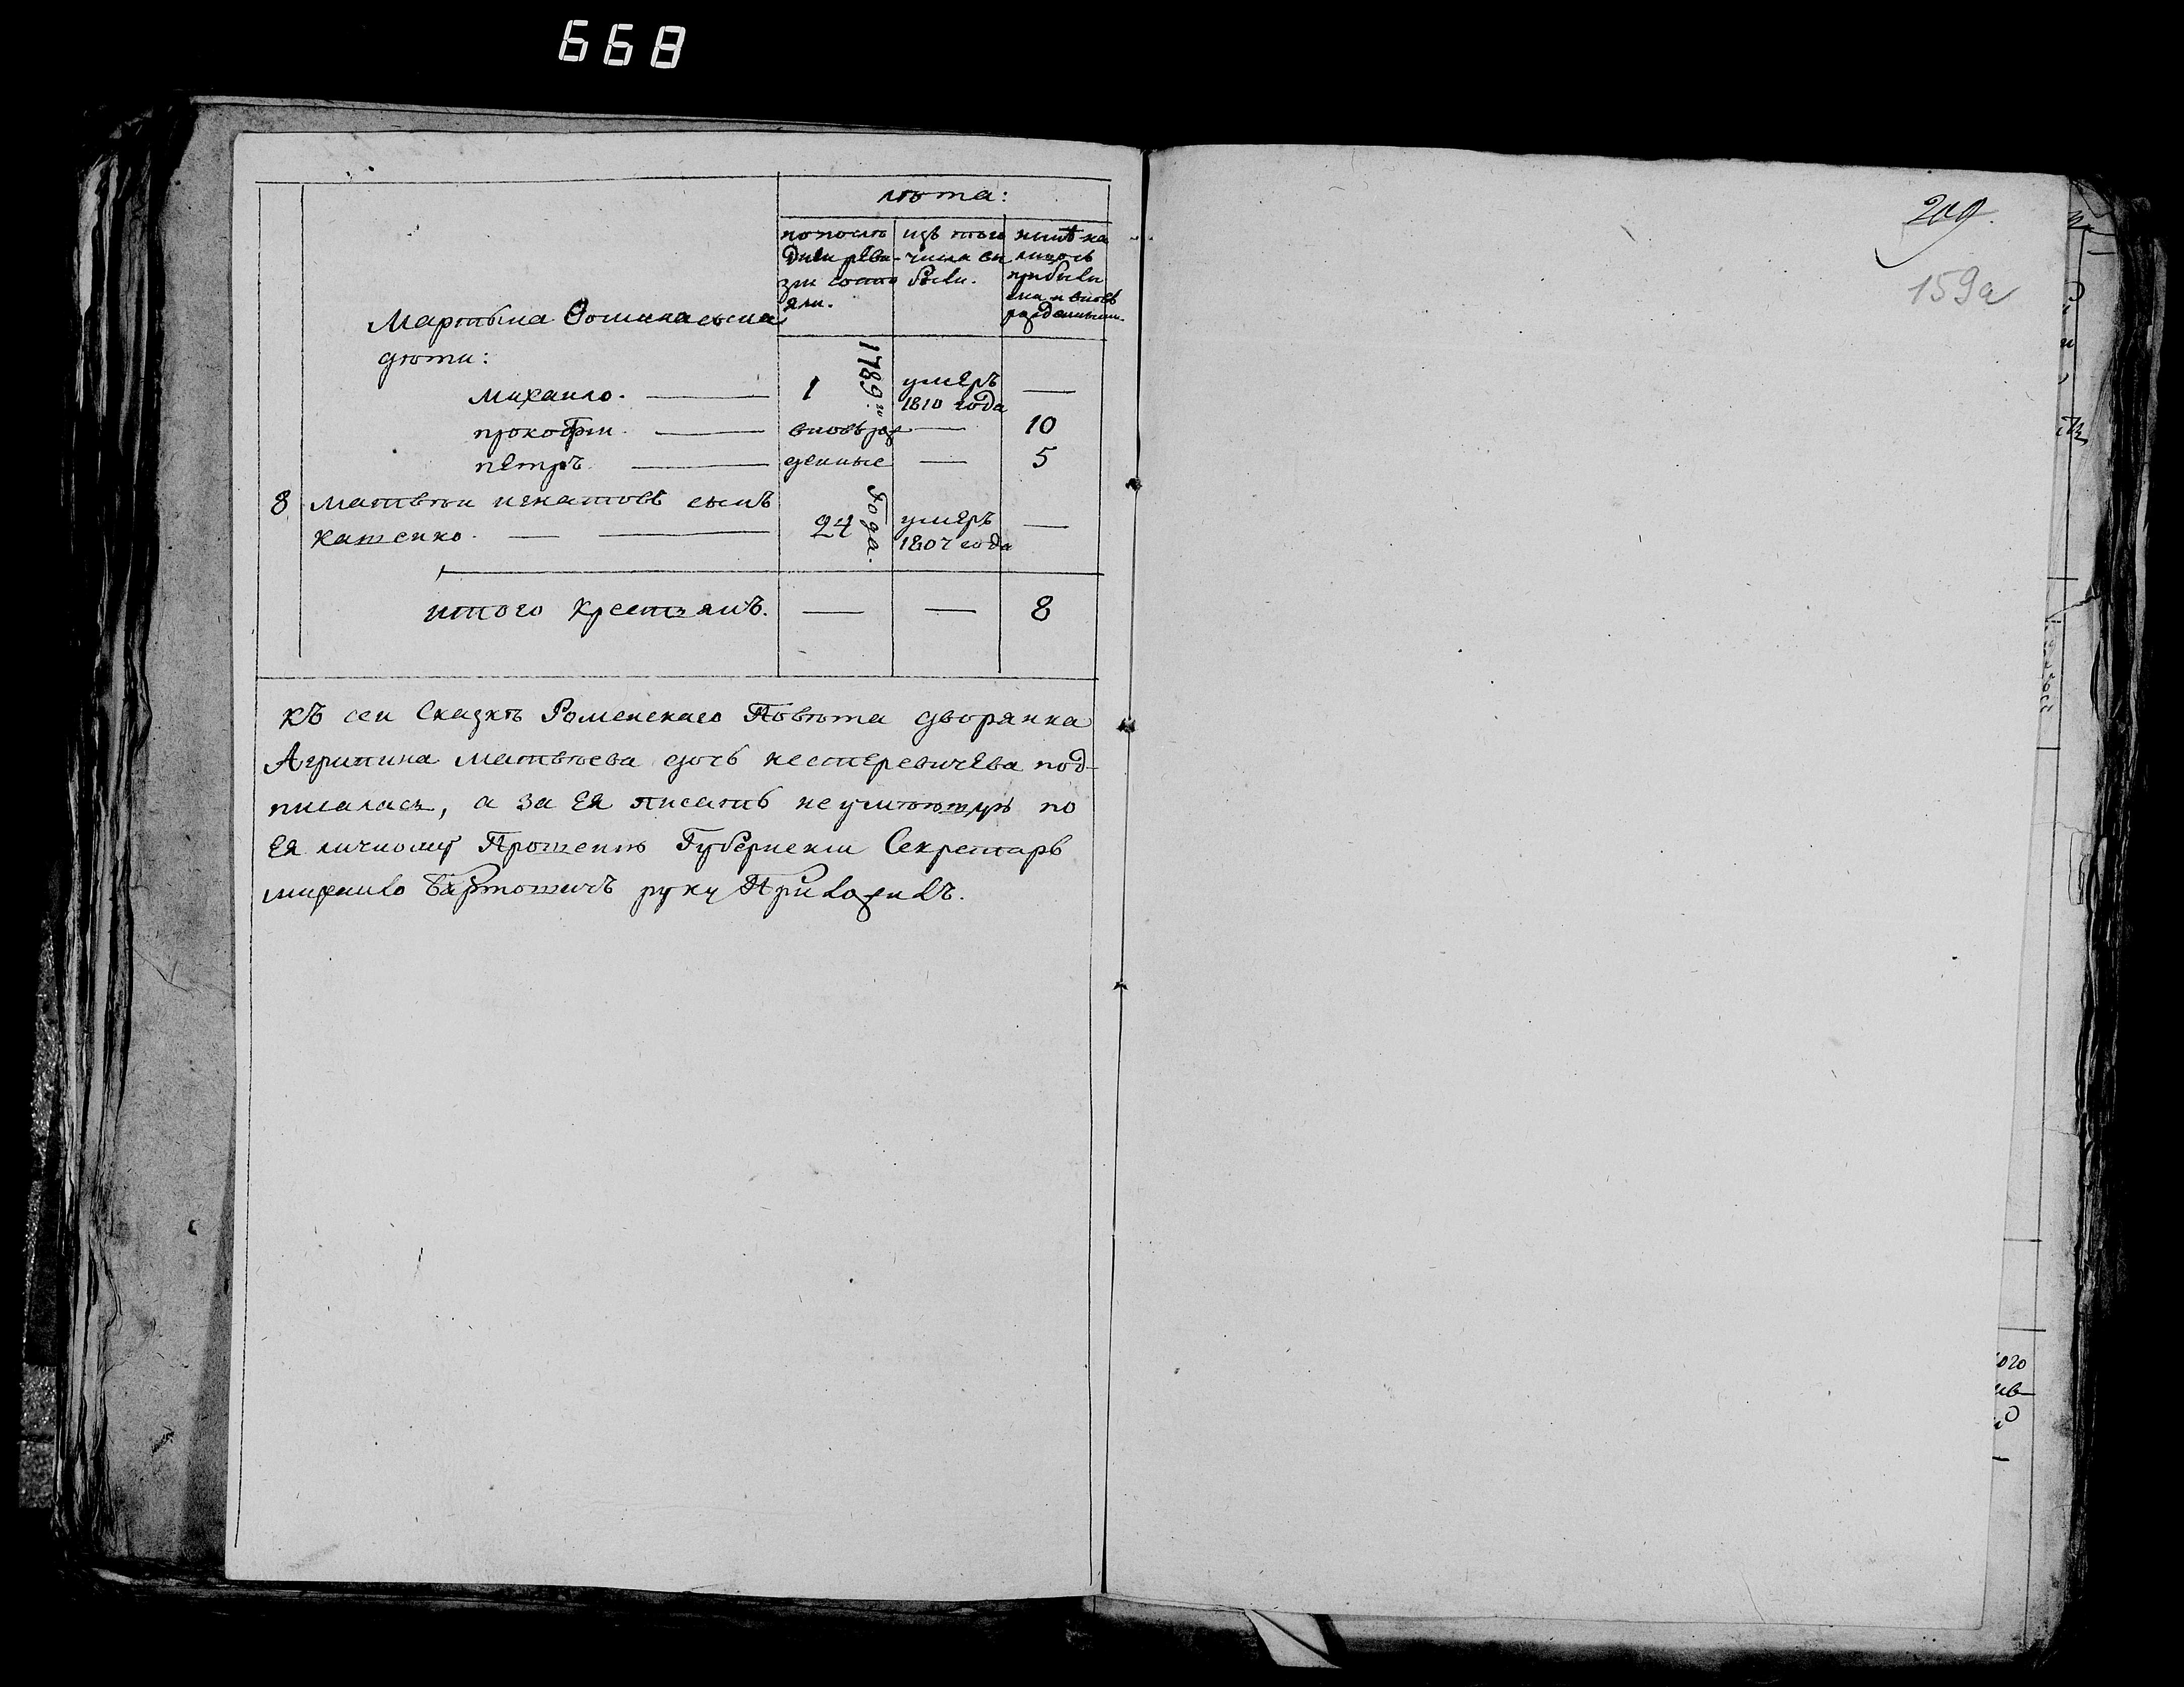 668
209.
159а
лѣта:
попослѣ
дней реви-
зіи состо
яли.
изъ того
числа вы
были.
нынѣ на
лицо съ
прибыли
ми и вновь
рожденными.
Мартына Фомина сына
дѣти:
Михаило. — 1 умеръ 1810 года —
прокофіи. — вновь рож — 10
петръ — денные — 5
1789го года.
8 Матвѣи игнатовъ сынъ
катенко. — 24 умеръ 1807 года —
итого крестьянъ. — — 8
Къ сеи Сказкѣ Роменскаго Повѣта дворянка
Агрипина Матвѣева дочь нестеревичева под-
писалась, а за Ея писать неумѣющую по
Ея личному Прошенію Губернскіи Секретарь
михаило Бартошичъ руку Приложилъ.